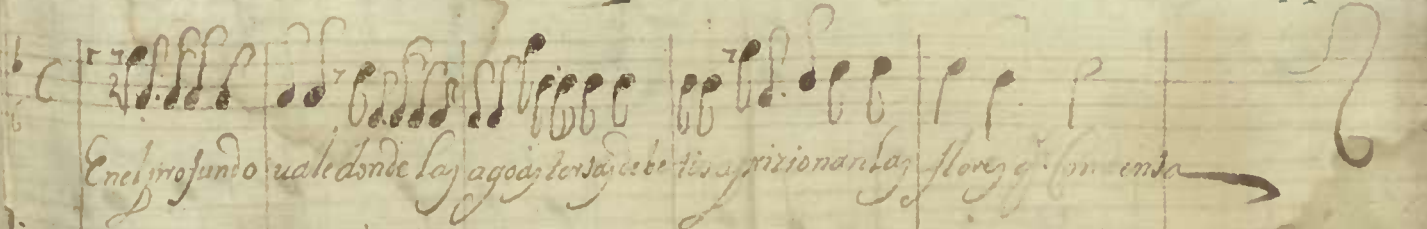 En el profundo uale donde las agoas tersas de betis aprizionan las flores q. Comensa